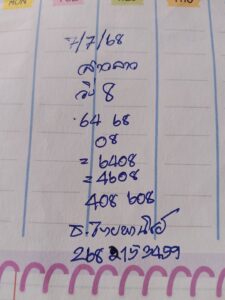 MON TUE WED THU
7/7/68
สาวลาว
วิ่ง 8
64 68
08
= 6408
= 4608
408 608
ธ.ไทยพาณิชย์
268 2153499